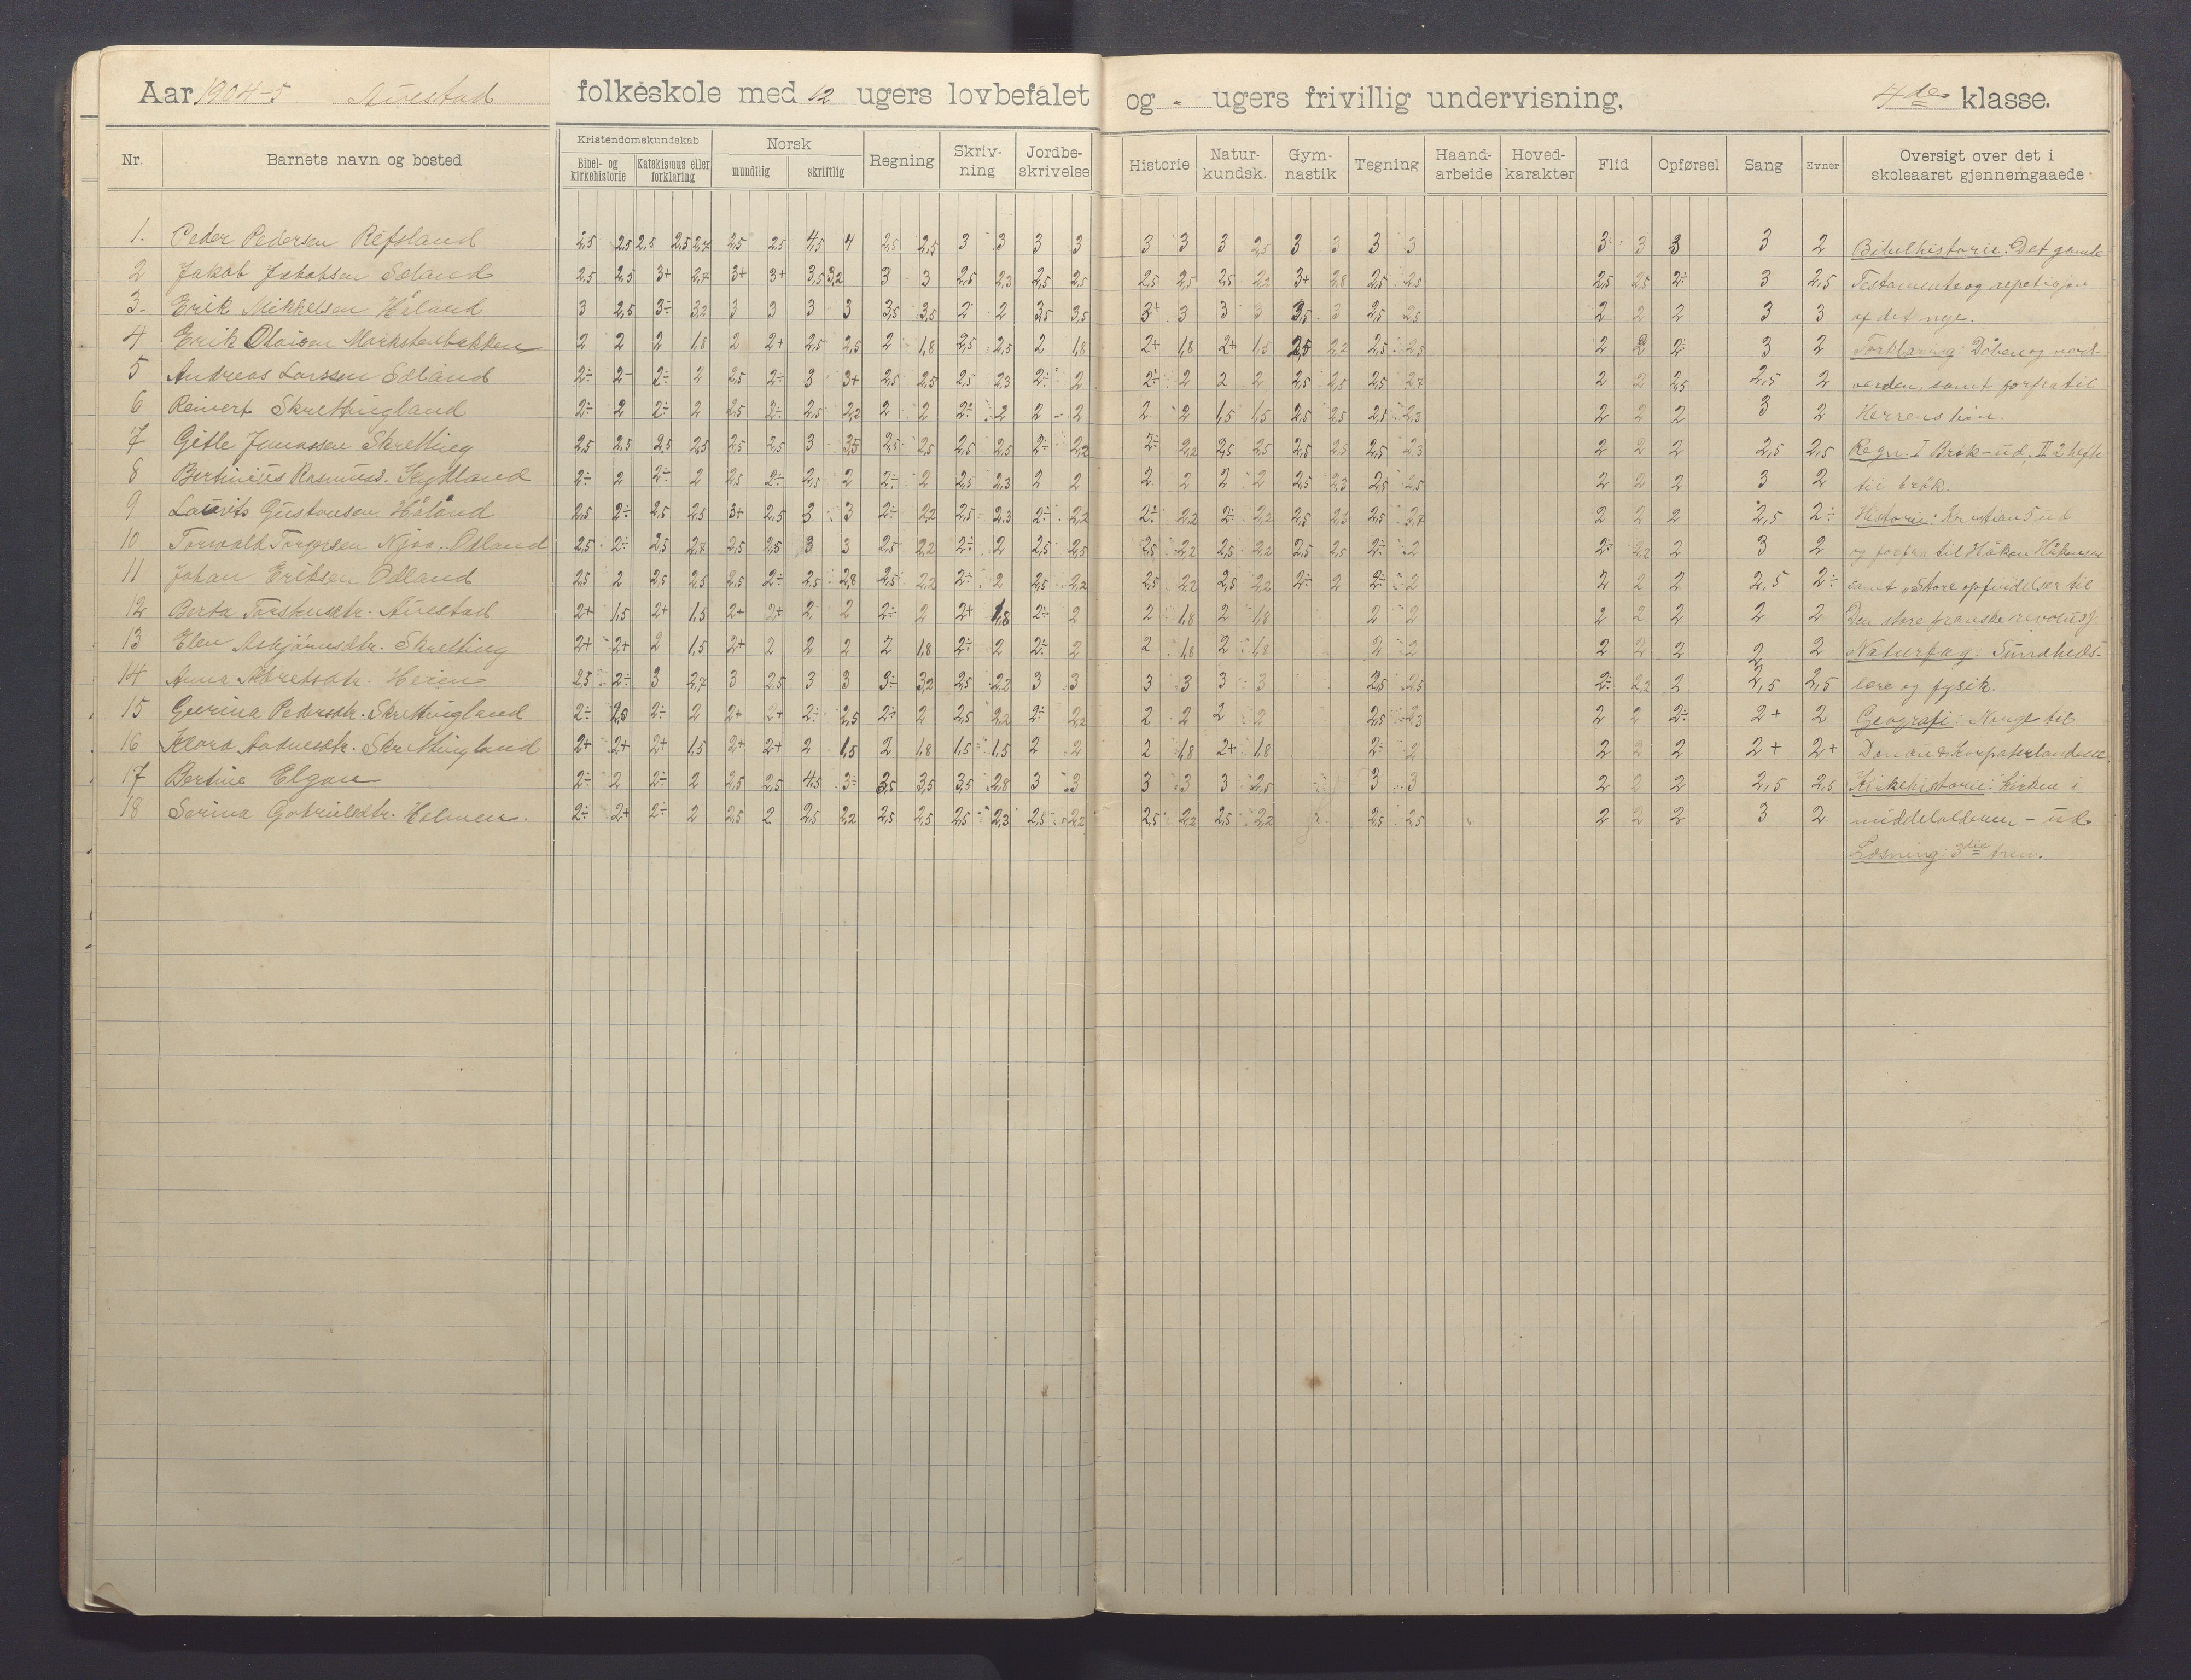 Aar 1904-5 Auestad folkeskole med 12 ugers lovbefalet og - ugers frivillig undervisning, 4de klasse.
Nr. Barnets navn og bosted Kristendomskundskab Norsk Regning Skriv-ning Jordbe-skrivelse Historie Natur-kundsk. Gym-nastik Tegning Haand-arbeide Hoved-karakter Flid Opførsel Sang Evner Oversigt over det i skoleaaret gjennemgaaede
Bibel- og kirkehistorie Katekismus eller forklaring mundtlig skriftlig
1. Peder Pedersen Refsland 2,5 2,5 2,5 2,5 2,4 2,5 2,5 4,5 4 2,5 2,5 3 3 3 3 3 3 3 2,5 3 3 3 3 3 3 3 3 2 Bibelhistorie: Det gamle
2 Jakob Jakobsen Sæland 2,5 2,5 3+ 2,7 3+ 3+ 3,5 3,2 3 3 2,5 2,3 2,5 2,5 2,5 2,5 2,5 2,2 3+ 2,8 2,5 2,5 2,5 2,5 2÷ 3 2,5 Testamente og repetisjon
3. Erik Mikkelsen Håland 3 2,5 3÷ 3,2 3 3 3 3 3,5 3,5 2 2 3,5 3,5 3+ 3 3 3 3,5 3 2,5 2,5 2 2 2 3 3 af det nye.
4 Erik Olaisen Markstenbekken 2 2 2 1,8 2 2+ 2,5 2,5 2 1,8 2,5 2,5 2 1,8 2+ 1,8 2+ 1,5 2,5 2,2 2,5 2,5 2 2 2÷ 3 2 Forklaring: Dåben og nad-
5 Andreas Larssen Sæland 2÷ 2- 2÷ 2 2,5 2÷ 3 3+ 2,5 2,5 2,5 2,3 2÷ 2 2÷ 2 2 2 2,5 2,5 2,5 2,4 2 2 2,5 2,5 2 verden, samt forfra til
6 Reinert Skrettingland 2÷ 2 2÷ 2 2,5 2÷ 2,5 2,2 2 2 2÷ 2 2 2 2 2 1,5 1,5 2,5 2,5 2,5 2,3 2 2 2 3 2 Herrens bøn.
7 Gitle Jonassen Skretting 2,5 2,5 2,5 2,5 2,5 2,5 3 3,5 2,5 2,5 2,5 2,5 2÷ 2,2 2÷ 2,2 2,5 2,5 2,5 2,5 2,5 2,3 2 2 2 2,5 2,5 Regn. I Brøk - ud. II 2 hefte
8 Bertinius Rasmuss. Kydland 2÷ 2 2÷ 2 2,5 2÷ 2,5 2 2÷ 2 2,5 2,3 2 2 2 2 2 2 2,5 2,3 2,5 2,5 2 2 2 3 2 til brøk.
9 Lauvits Gustavsen Håland 2,5 2÷ 2,5 2,5 3+ 2,5 3 3 2÷ 2,2 2,5 2,3 2÷ 2,2 2÷ 2,2 2÷ 2,2 2,5 2,3 2,5 2,4 2 2 2 2,5 2÷ Historie: Kristian 5 ud
10 Torvald Torgersen Njaa. Ødland 2,5 2÷ 2,5 2,4 2,5 2,5 3 3 2,5 2,2 2÷ 2 2,5 2,5 2,5 2,2 2,5 2,2 2,5 2,5 2÷ 2 2÷ 2,2 2 3 2 og forfra til Håkon Håkonsen
11 Johan Eriksen Ødland 2,5 2 2,5 2,5 2,5 2÷ 2,5 2,8 2,5 2,2 2÷ 2 2,5 2,2 2,5 2,2 2,5 2,2 2÷ 2 2÷ 2 2 2 2 2,5 2÷ samt „Store opfindelser til
12 Berta Torstensdtr. Auestad 2+ 1,5 2+ 1,5 2+ 2+ 2 2 2÷ 2 2+ 1,8 2÷ 2 2 1,8 2 1,8 2 2 2 2 2 2 2 Den store franske revolusj.
13 Elen Asbjørnsdtr. Skretting 2+ 2+ 2 1,5 2+ 2 2 2 2 1,8 2÷ 2 2÷ 2 2 1,8 2 1,8 2 2 2 2 2 2 2 Naturfag: Sundheds-
14 Anna Heien 2,5 2÷ 3 2,7 3 2,5 3 3 3÷ 3,2 2,5 2,2 3 3 3 3 3 3 2,5 2,5 2÷ 2,2 2 2,5 2,5 lære og fysik.
15 Gurina Pedersdtr. Skrettingland 2÷ 2,5 2÷ 2 2+ 2+ 2÷ 2,5 2÷ 2 2,5 2,2 2÷ 2,2 2 2 2 2 2,5 2,3 2 2 2÷ 2+ 2 Geografi: Norge til
16 Klara Aadnesdtr. Skrettingland 2+ 2+ 2+ 1,5 2+ 2+ 2 1,5 2 1,8 1,5 1,5 2 2 2 1,8 2+ 1,8 2÷ 2 2 2 2 2+ 2+ Donau & Karpaterlandene
17 Bertine Elgan 2÷ 2 2÷ 2 2,5 2,5 4,5 3÷ 3,5 3,5 3,5 2,8 3 3 3 3 3 2,5 3 3 2 2 2 2,5 2,5 Kirkehistorie: Kirken i
18 Serina Gabrielsdtr. Holmen. 2÷ 2+ 2÷ 2 2,5 2 2,5 2,2 2,5 2,5 2,5 2,3 2,5 2,2 2,5 2,2 2,5 2,2 2,5 2,5 2 2 2 3 2 middelalderen - ud
Læsning: 3die trin.